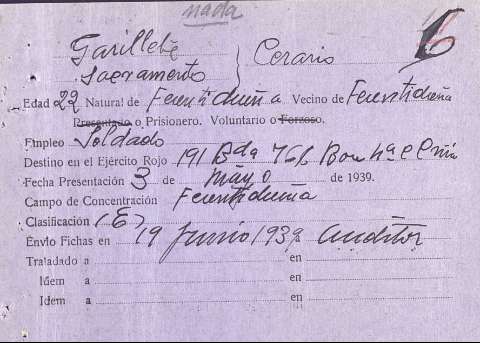 nada
Garillete } Cerario
Sacramento
Edad 22 Natural de Fuentidueña Vecino de Fuentidueña
Presentado o Prisionero. Voluntario o Forzoso.
Empleo Soldado
Destino en el Ejército Rojo 191 Bda 766 Bon
Fecha Presentación 3 de Mayo de 1939.
Campo de Concentración Fuentidueña
Clasificación (E)
Envío Fichas en 19 Junio 1939 Auditor
Traladado a en
Idem a en
Idem a en